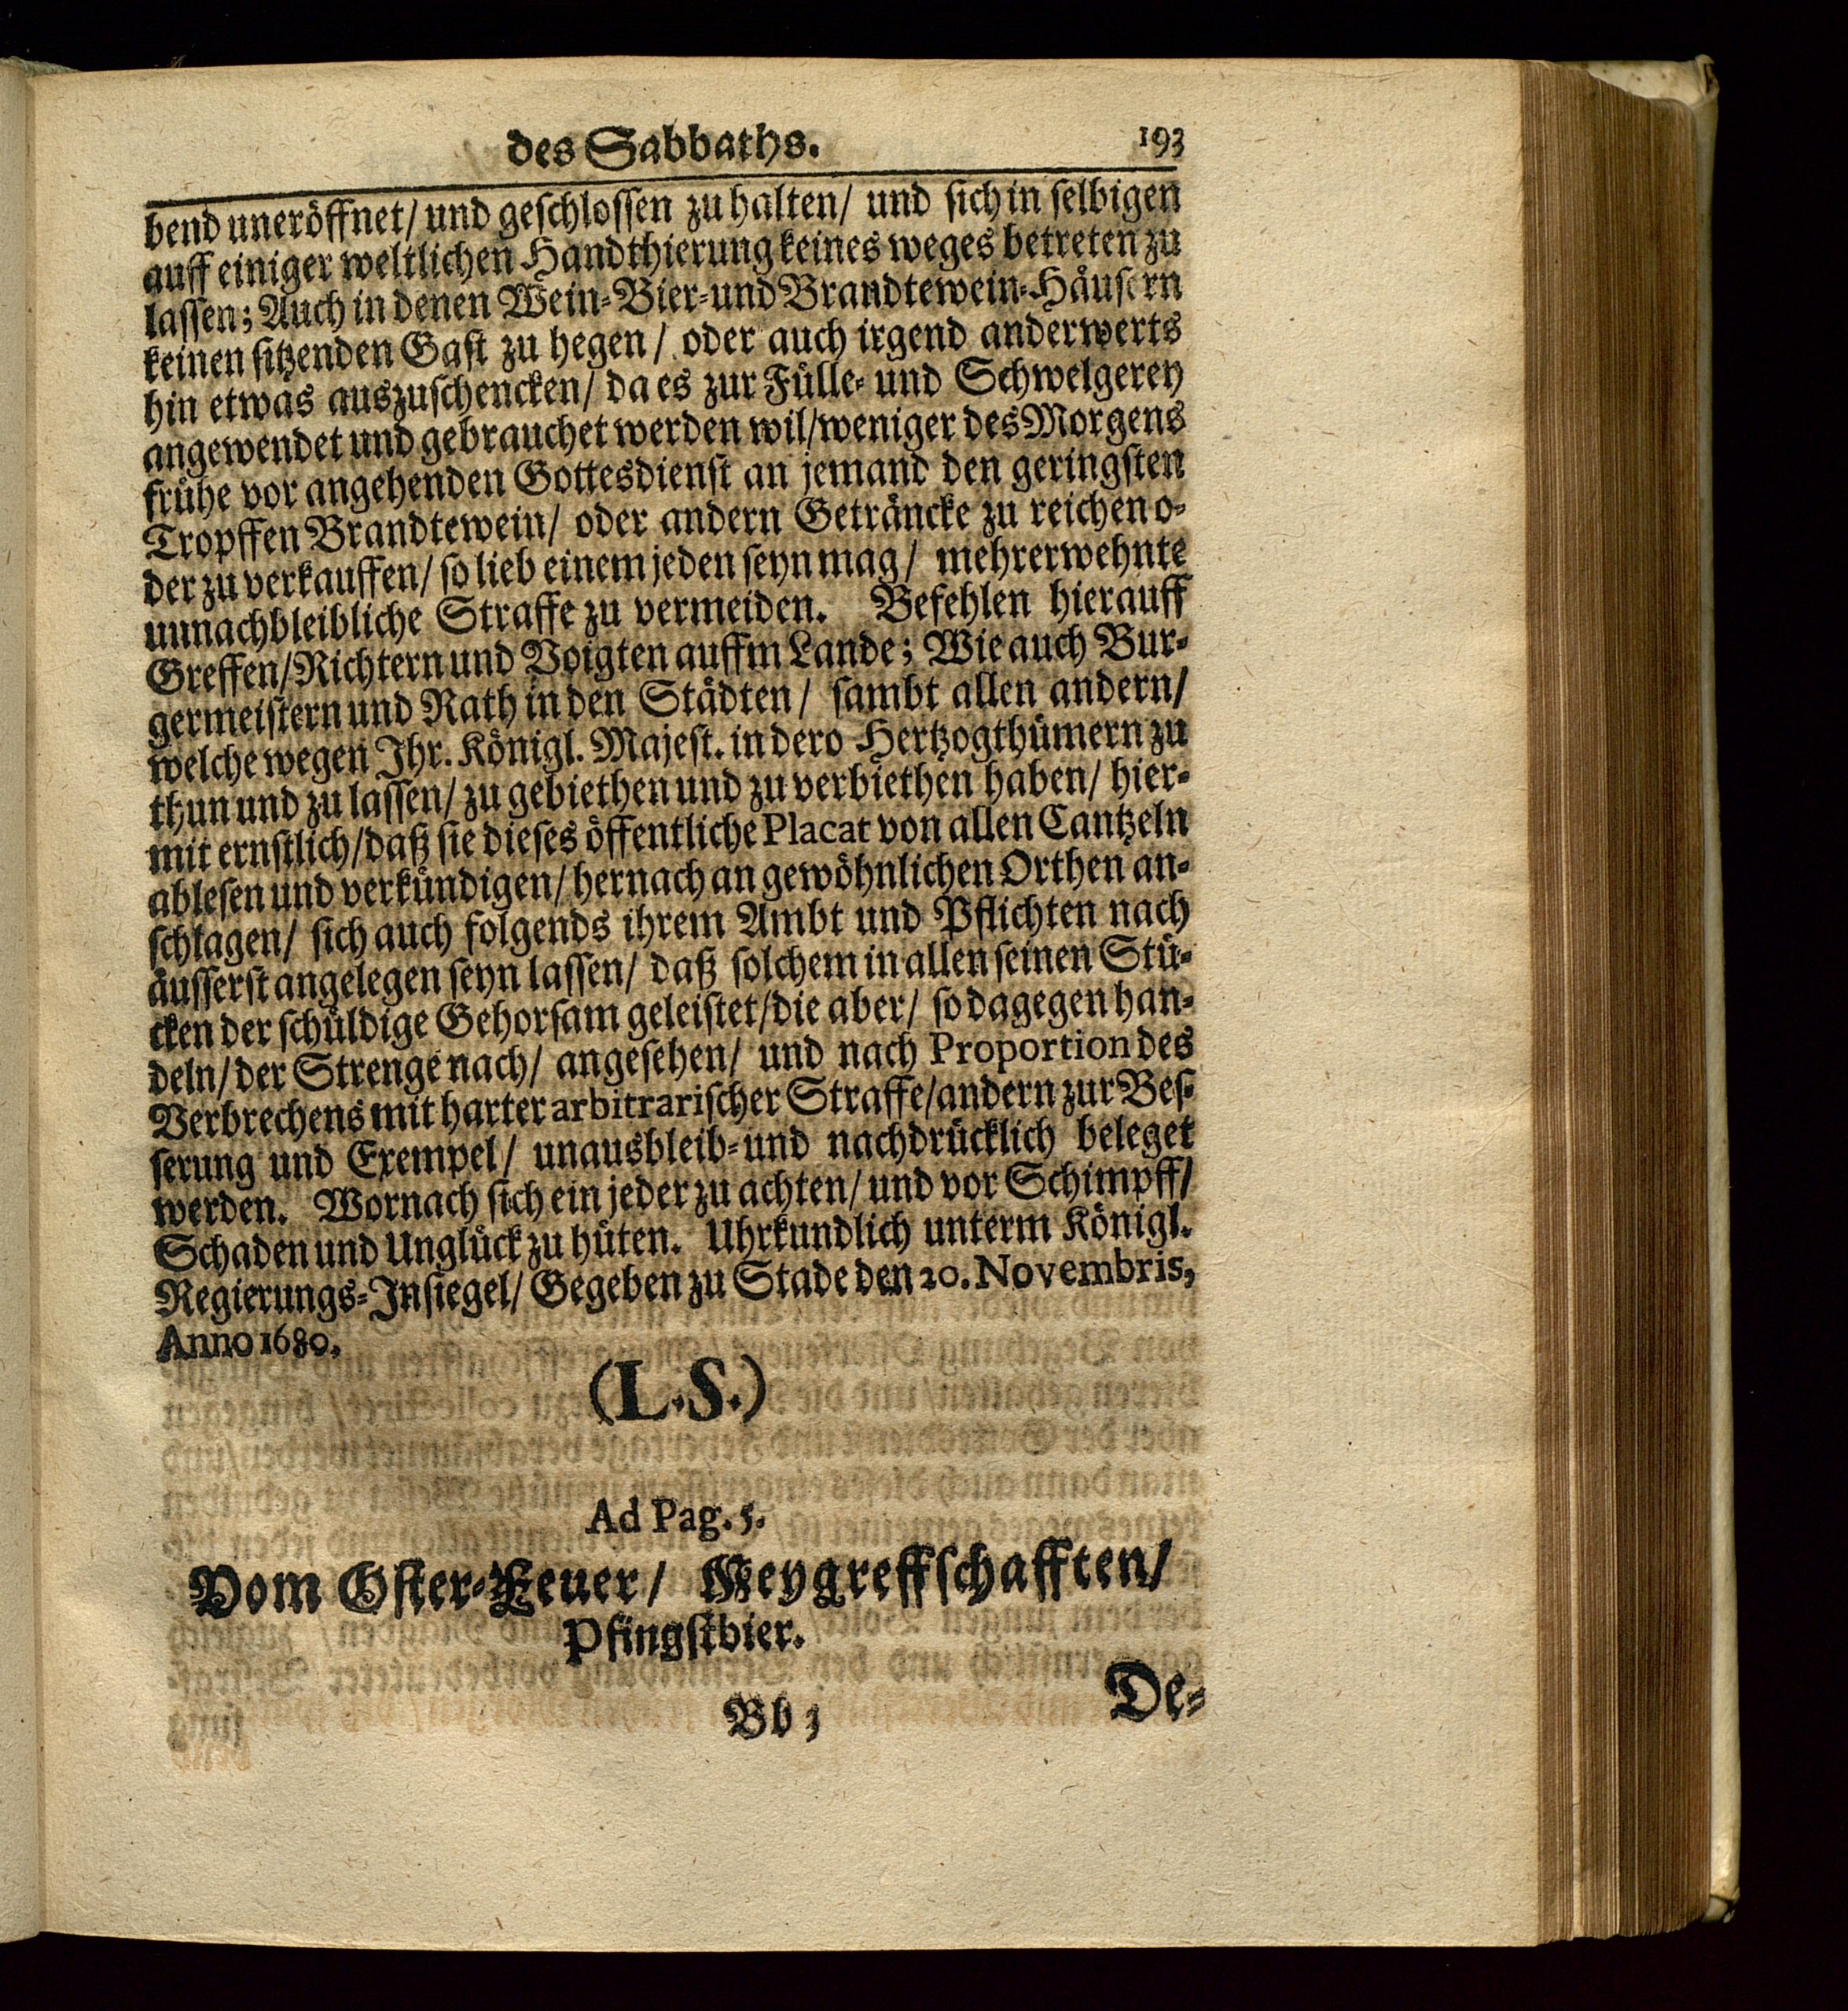 des Sabbaths. 193
bend uneröffnet/ und geschlossen zu halten/ und sich in selbigen
auff einiger weltlichen Handthierung keines weges betreten zu
lassen; Auch in denen Wein-Bier-und Brandtewein-Häusern
keinen sitzenden Gast zu hegen/ oder auch irgend anderwerts
hin etwas auszuschencken/ da es zur Fülle- und Schwelgerey
angewendet und gebrauchet werden wil/weniger des Morgens
frühe vor angehenden Gottesdienst an jemand den geringsten
Tropffen Brandtewein/ oder andern Geträncke zu reichen o-
der zu verkauffen/ so lieb einem jeden seyn mag/ mehrerwehnte
unnachbleibliche Straffe zu vermeiden. Befehlen hierauff
Greffen/Richtern und Voigten auffm Lande; Wie auch Bur-
germeistern und Rath in den Städten/ sambt allen andern/
welche wegen Ihr. Königl. Majest. in dero Hertzogthümern zu
thun und zu lassen/ zu gebiethen und zu verbiethen haben/ hier-
mit ernstlich/daß sie dieses öffentliche Placat von allen Cantzeln
ablesen und verkündigen/ hernach an gewöhnlichen Orthen an-
schlagen/ sich auch folgends ihrem Ambt und Pflichten nach
äusserst angelegen seyn lassen/ daß solchem in allen seinen Stü-
cken der schuldige Gehorsam geleistet/die aber/ so dagegen han-
deln/der Strenge nach/ angesehen/ und nach Proportion des
Verbrechens mit harter arbitrarischer Straffe/andern zur Bes-
serung und Exempel/ unausbleib-und nachdrücklich beleget
werden. Wornach sich ein jeder zu achten/ und vor Schimpff/
Schaden und Unglück zu hüten. Uhrkundlich unterm Königl.
Regierungs-Insiegel/ Gegeben zu Stade den 20. Novembris,
Anno 1680.
(L.S.)
Ad Pag. 5.
Vom Oster-Feuer/ Meygreffschafften/
Pfingstbier.
Bb 3 De-